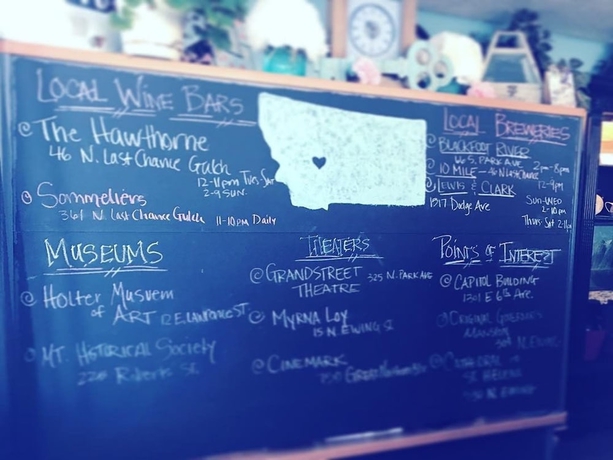 LOCAL WINE BARS
@ The Hawthorne
46 N. Last Chance Gulch
12-11pm Tues-Sat
2-9 SUN.
@ Sommeliers
361 N. Last Chance Gulch 11-10pm Daily
LOCAL BREWERIES
@ BLACKFOOT RIVER
66 S. PARK AVE 2pm-8pm
@ 10 MILE - 46 N Last Chance
12-9pm
@ LEWIS & CLARK
1517 Dodge Ave
Sun-Wed
2-10pm
Thurs-Sat
MUSEUMS
@ Holter Musuem
of ART 12 E. LAWRENCE ST
@ MT. HISTORICAL Society
225 Roberts St.
THEATERS
@ GRANDSTREET 325 N. PARK AVE
THEATRE
@ MYRNA LOY
15 N. EWING ST
@ CINEMARK
POINTS OF INTEREST
@ CAPITOL BUILDING
1301 E 6th Ave.
@ ORIGINAL GOVERNORS
MANSION
304 N. EWING
@ CATHEDRAL of
ST HELENA
530 N. EWING